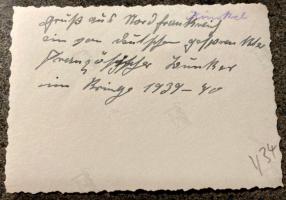 Gruß aus Nordfrankreich
ein von deutschen gesprengter
Französischer Bunker
im Kriege 1939-40
1/34